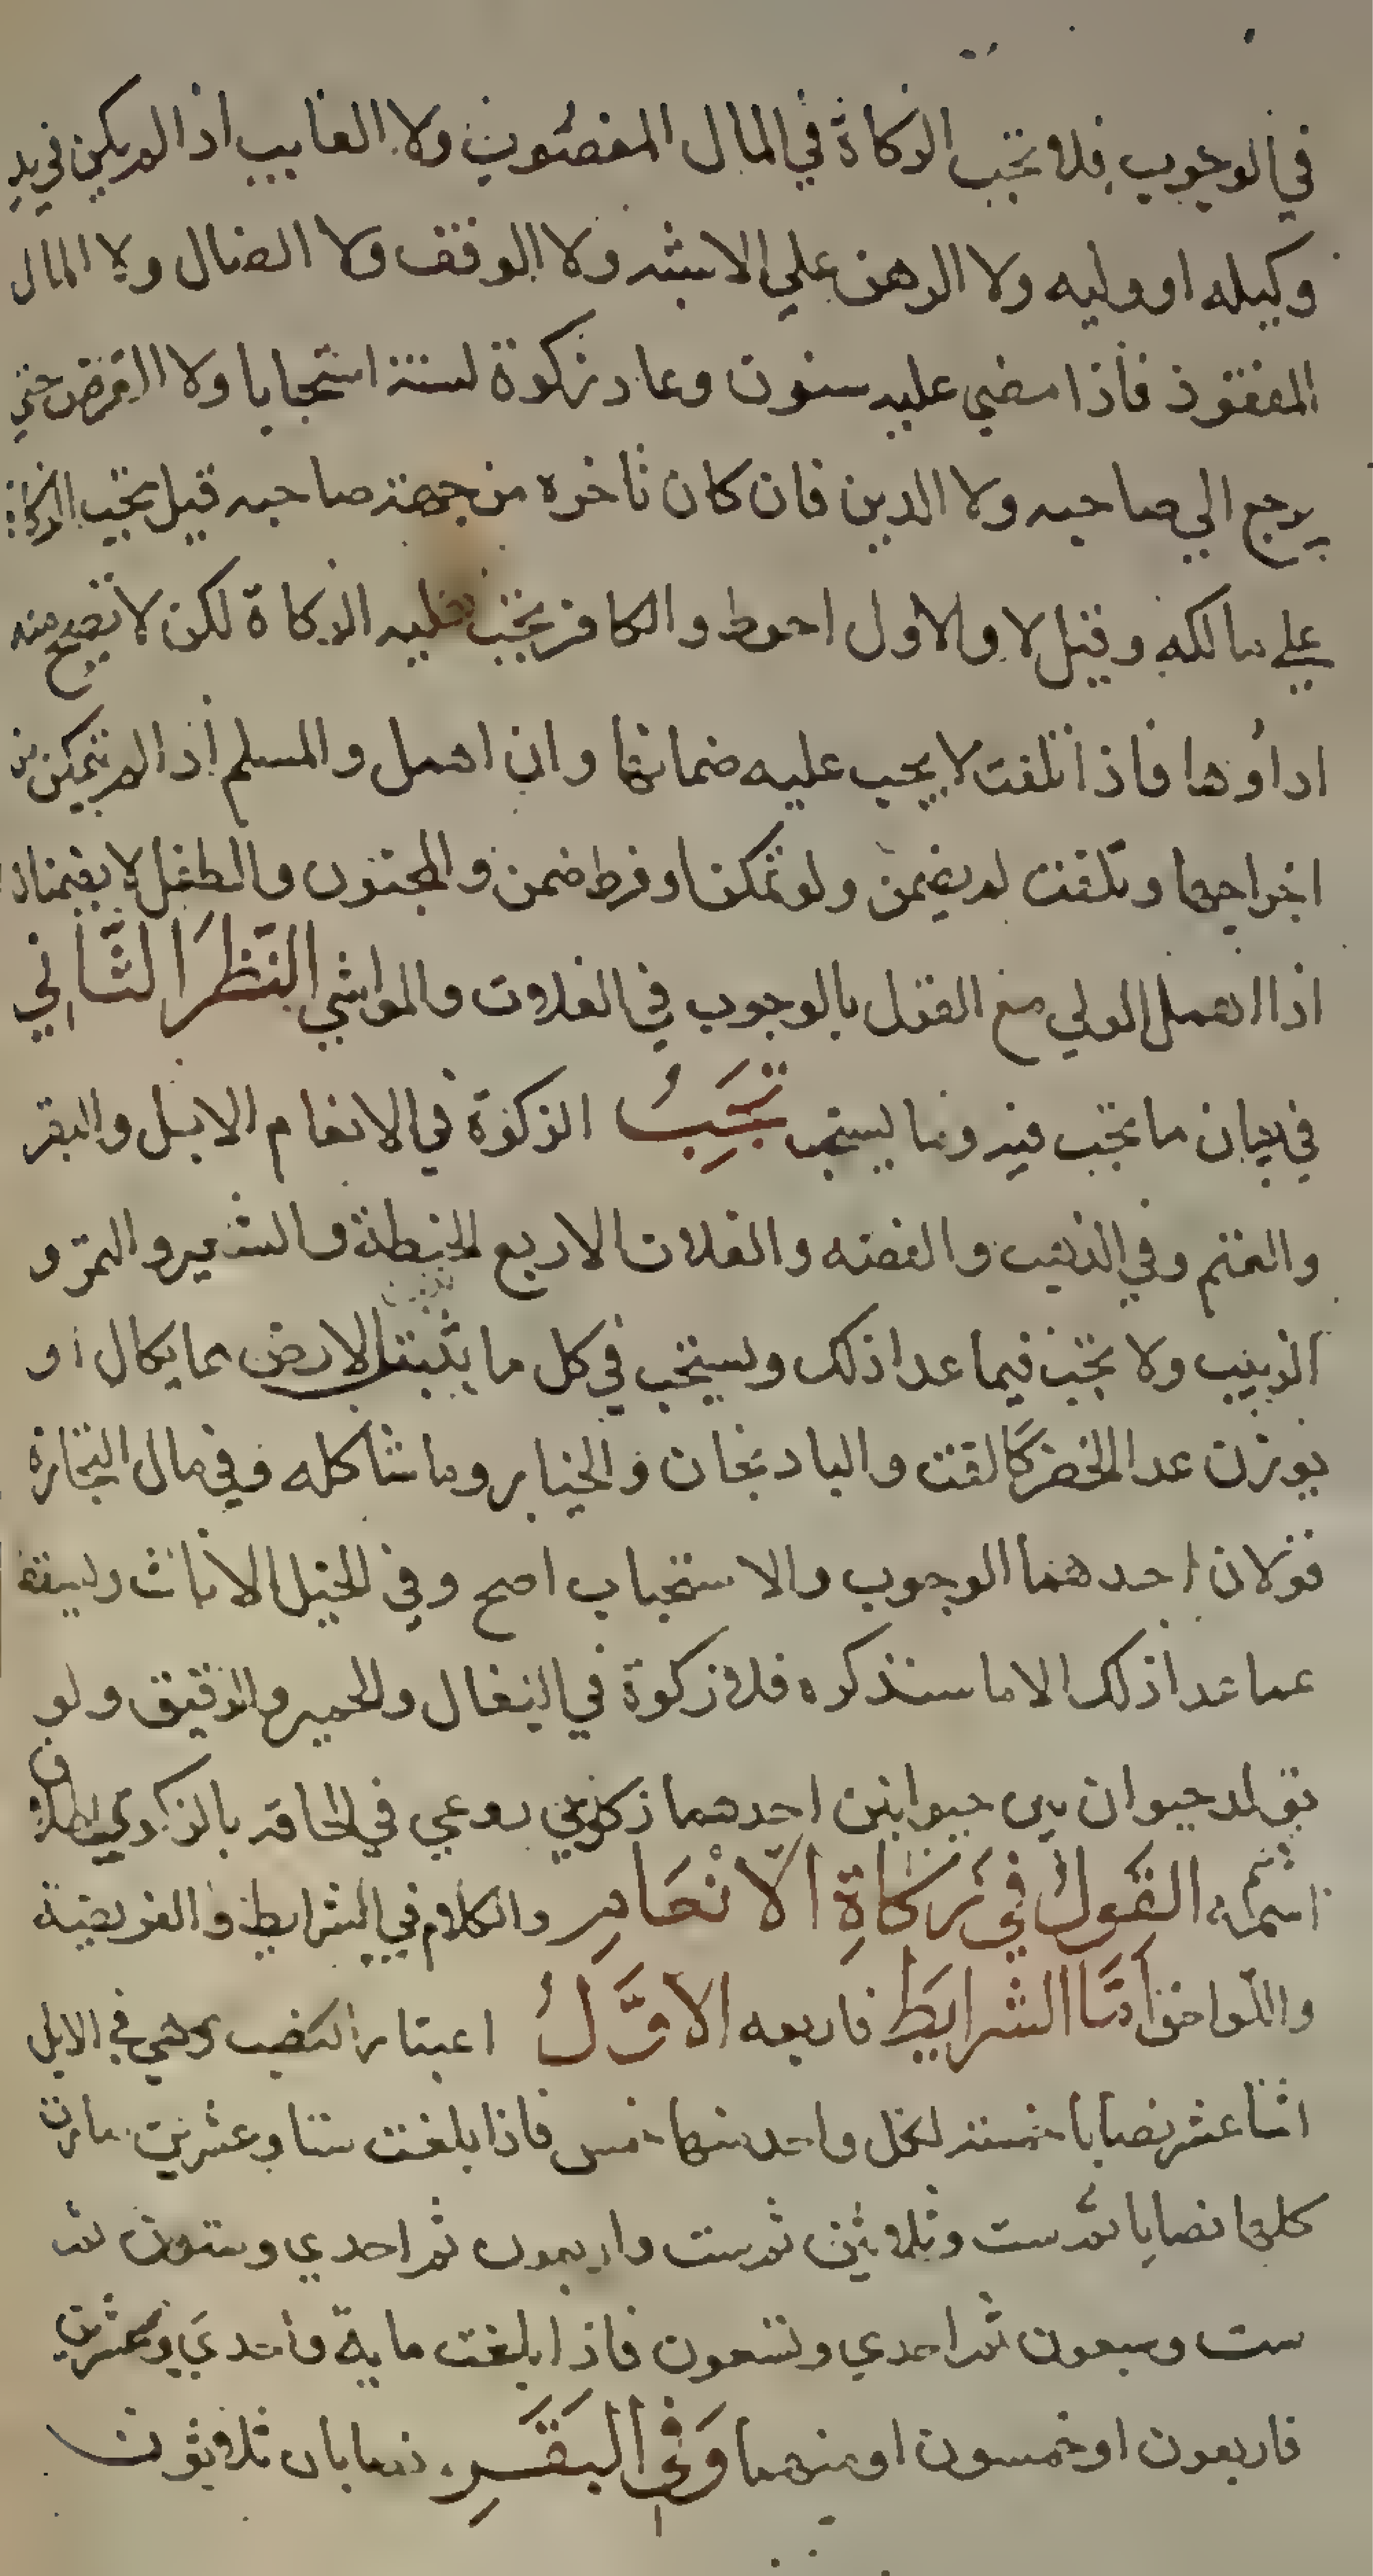 في الوجوب فلا تجب الزكاة في المال المغصوب ولا الغايب اذا لم يكن في يد
وكيله او وليه ولا الرهن علي الاشبه ولا الوقف ولا الضال ولا المال
المفقود فاذا مضي عليه سنون وعاد زكوة لسنة استحبابا ولا القرض حتي
يرجع الي صاحبه ولا الدين فان كان تاخره من جهة صاحبه قيل تجب الزكاة
علي مالكه وقيل لا والاول احوط والكافر تجب عليه الزكاة لكن لا تصح منه
اداؤها فاذا تلفت لا يجب عليه ضمانها وان اهمل والمسلم اذا لم يتمكن من
اخراجها وتلفت لم يضمن ولو تمكن او فرط ضمن والمجنون والطفل لا يضمنان
اذا اهمل الولي مع القول بالوجوب في الغلات والمواشي النظر الثاني
في بيان ما تجب فيه وما يستحب تجب الزكوة في الانعام الابل والبقر
والغنم وفي الذهب والفضه والغلات الاربع الحنطة والشعير والتمر و
الزبيب ولا تجب فيما عدا ذلك ويستحب في كل ما ينبت الارض مما يكال او
يوزن عدا الخضر كالقت والبادنجان والخيار وما شاكله وفي مال التجارة
قولان احدهما الوجوب والاستحباب اصح وفي الخيل الاناث ويسقط
عما عدا ذلك الا ما سنذكره فلا زكوة في البغال والحمير والرقيق ولو
تولد حيوان بين حيوانين احدهما زكوي روعي في الحاقه بالزكوي اطلاق
اسمه القول في زكاة الانعام والكلام في الشرايط والفريضة
واللواحق اما الشرايط فاربعه الاول اعتبار النصب وهي في الابل
اثنا عشر نصابا خمسة لكل واحد منها خمس فاذا بلغت ستا وعشرين صارت
كلها نصابا ثم ست وثلاثين ثم ست واربعون ثم احدي وستون ثم
ست وسبعون ثم احدي وتسعون فاذا بلغت ماية واحدي وعشرين
فاربعون او خمسون او منهما وفي البقر نصابان ثلاثون